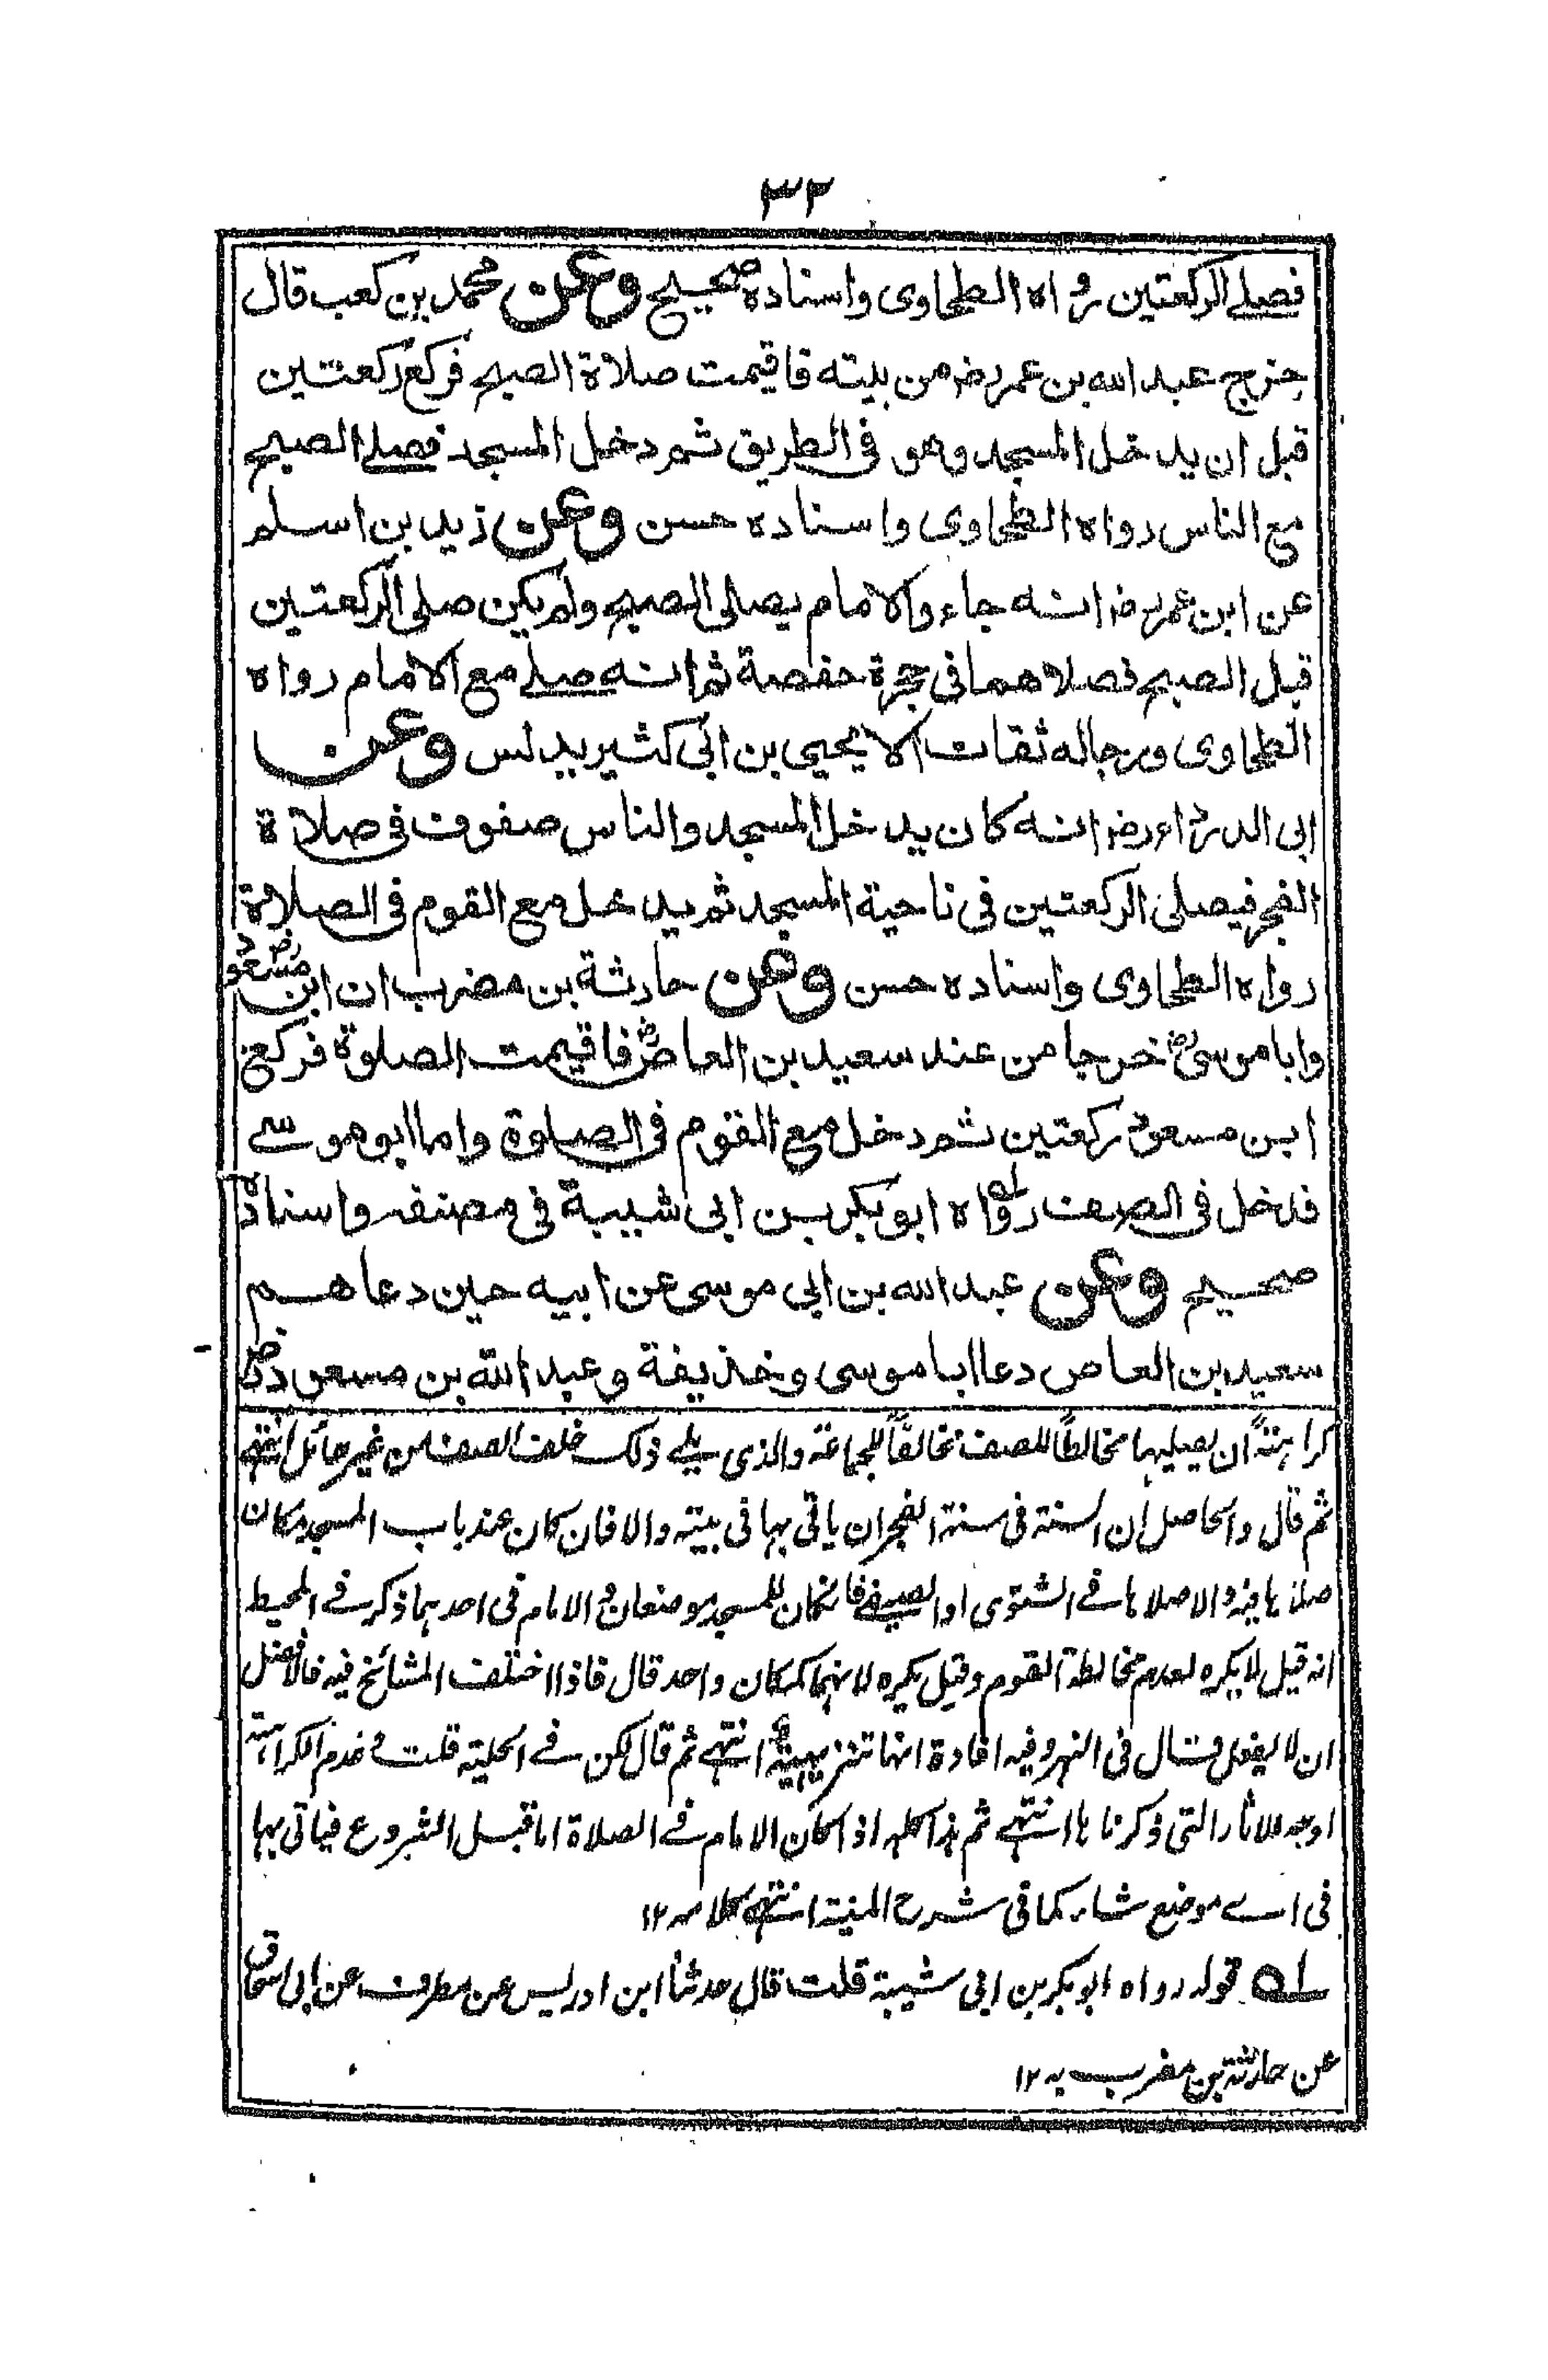 ٣٢
فصلى الركعتين رواه الطحاوى واسناده صحيح وعن محمد بن كعب قال
خرج عبد الله بن عمر رض من بيته فاقيمت صلاة الصبح فركع ركعتين
قبل ان يدخل المسجد وهو فى الطريق ثم دخل المسجد فصلى الصبح
مع الناس رواه الطحاوى واسناده حسن وعن زيد بن اسلم
عن ابن عمر رض انه جاء والامام يصلى الصبح ولم يكن صلى الركعتين
قبل الصبح فصلاهما فى حجرة حفصة ثم انه صلى مع الامام رواه
الطحاوى ورجاله ثقات الا يحيى بن ابى كثير يدلس وعن
ابى الدرداء رض انه كان يدخل المسجد والناس صفوف فى صلاة
الفجر فيصلى الركعتين فى ناحية المسجد ثم يدخل مع القوم فى الصلاة
رواه الطحاوى واسناده حسن وعن حارثة بن مضرب ان ابن مسعود رض
وابا موسى رض خرجا من عند سعيد بن العاص رض فاقيمت الصلوة فركع
ابن مسعود رض ركعتين ثم دخل مع القوم فى الصلوة واما ابو موسى
فدخل فى الصف رواه ابو بكر بن ابى شيبة فى مصنفه واسناده
صحيح وعن عبد الله بن ابى موسى عن ابيه حين دعاهم
سعيد بن العاص دعا ابا موسى وحذيفة وعبد الله بن مسعود رض
كراهتة ان يصليهما مخالطاً للصف مخالفاً للجماعة والذى يلى ذلك خلف الصف من غير حائل انتهى
ثم قال والحاصل ان السنة فى سنة الفجر ان ياتى بها فى بيته والا فان كان عند باب المسجد مكان
صلاها فيه والا صلاها فى الشتوى او الصيفى فان كان للمسجد موضعان والامام فى احدهما ذكر فى المحيط
انه قيل لا يكره لعدم مخالطة القوم وقيل يكره لانهما كمكان واحد قال فاذا اختلف المشائخ فيه فالافضل
ان لا يفعل قال فى النهر وفيه افادة انها تنزيهية انتهى ثم قال لكن فى الحلية قلت و عدم الكراهة
اوجه للاثار التى ذكرناها انتهى ثم هذا كله اذا كان الامام فى الصلاة اما قبل الشروع فياتى بها
فى اى موضع شاء كما فى شرح المنية انتهى كلامه ١٢
له قوله رواه ابو بكر بن ابى شيبة قلت قال حدثنا ابن ادريس عن مطرف عن ابى اسحاق
عن حارثة بن مضرب به ١٢